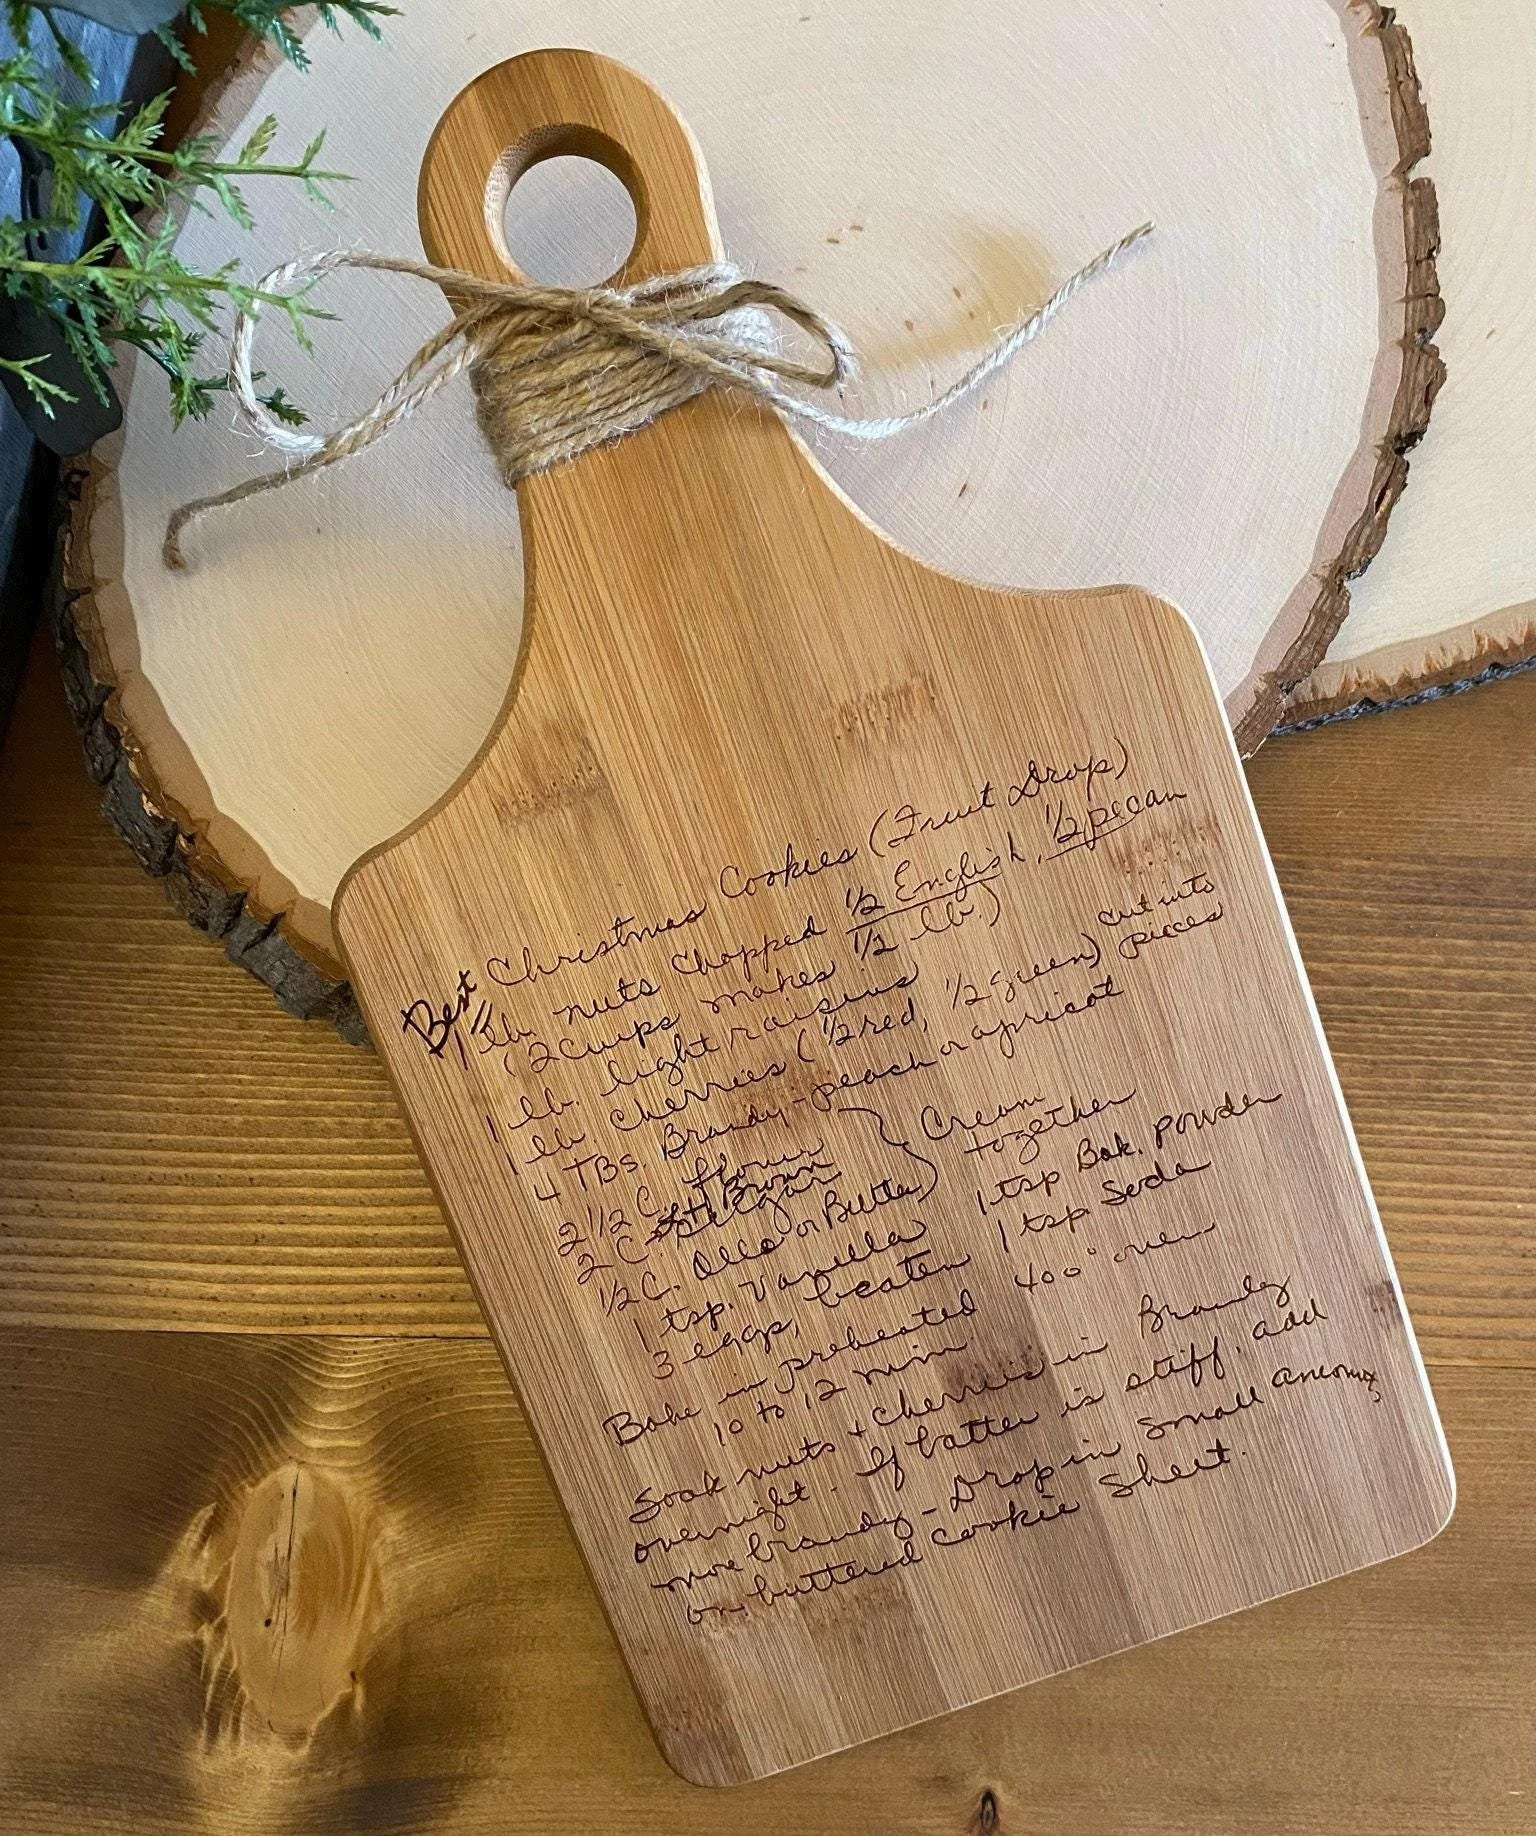 Best Christmas Cookies (Fruit Drop)
1 lb. nuts chopped 1/2 English, 1/2 pecan
(2 cups makes 1/2 lb.)
1 lb. light raisins
1 lb. cherries (1/2 red, 1/2 green) cut into pieces
4 TBS. Brandy - peach or apricot
2 1/2 C. flour
2 C. Lt Brown sugar
1/2 C. Oleo or Butter } Cream together
1 tsp. Vanilla 1 tsp Bak. powder
3 eggs, beaten 1 tsp. Soda
Bake in preheated 400° oven
10 to 12 min.
Soak nuts + cherries in Brandy
overnight. If batter is stiff, add
more brandy - Drop in small amounts
on buttered cookie sheet.